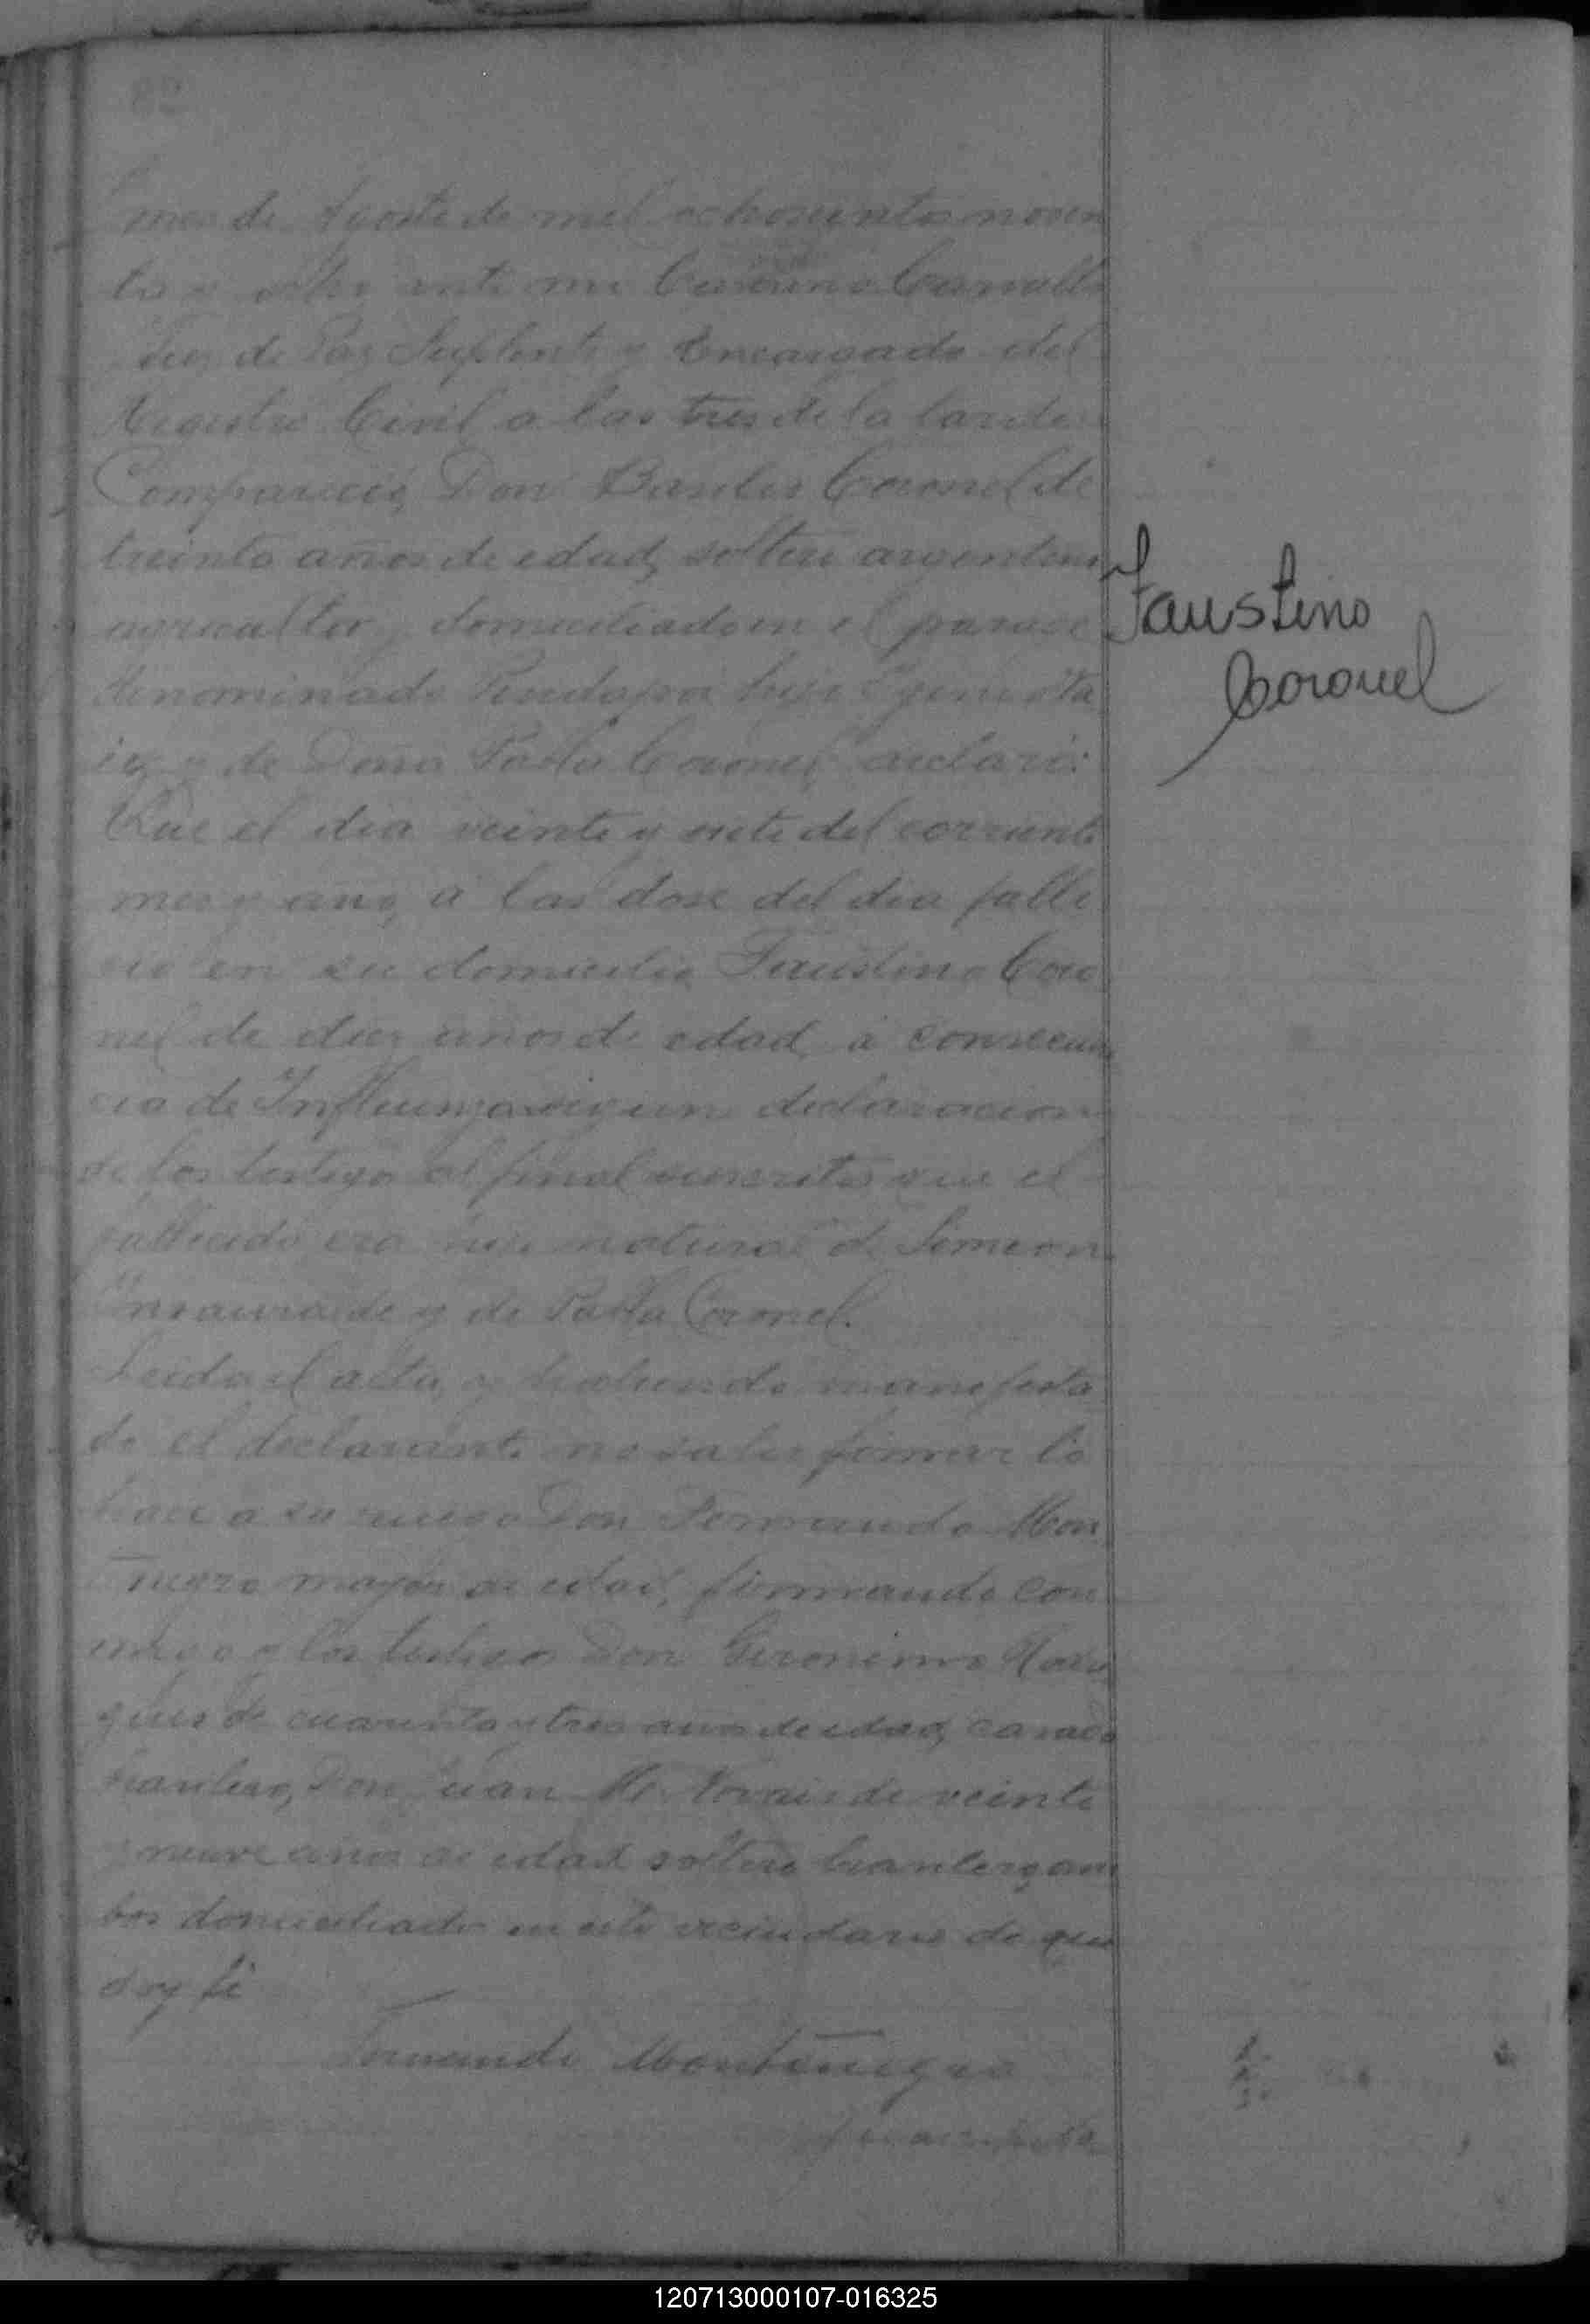 82
mes de Agosto de mil ochosientos noven
ta y ocho, ante mi Carvallo
Juez de Paz Suplente y Encargado del
Registro Civil a las tres de la tarde
Compareció Don Basilio Coronel de
treinta años de edad, soltero argentino
agricultor, domiciliado en el paraje
denominado hijo
y de Doña Pabla Coronel, declaró:
Que el dia veinte y siete del corriente
mes y año, á las dose del dia falle
cio en su domicilio Faustino Coro
nel de diez años de edad, á consecuen
cia de Influenza segun declaracion
de los testigo al final suscritos que el
fallecido era hijo natural de Simeon
Insaurralde y de Pabla Coronel.
Leida el acta, y habiendo manifesta
do el declarante no saber firmar lo
hace a su ruego Don Fernando Mon
negro mayor de edad, firmando con
migo y los testigos Don Geronimo Rodri
gues de cuarenta y tres años de edad, casado
Don Juan de veinte
y nueve años de edad soltero am
bos domiciliados en este vecindario de que
doy fé
Fernando Montenegro
Faustino
Coronel
120713000107-016325